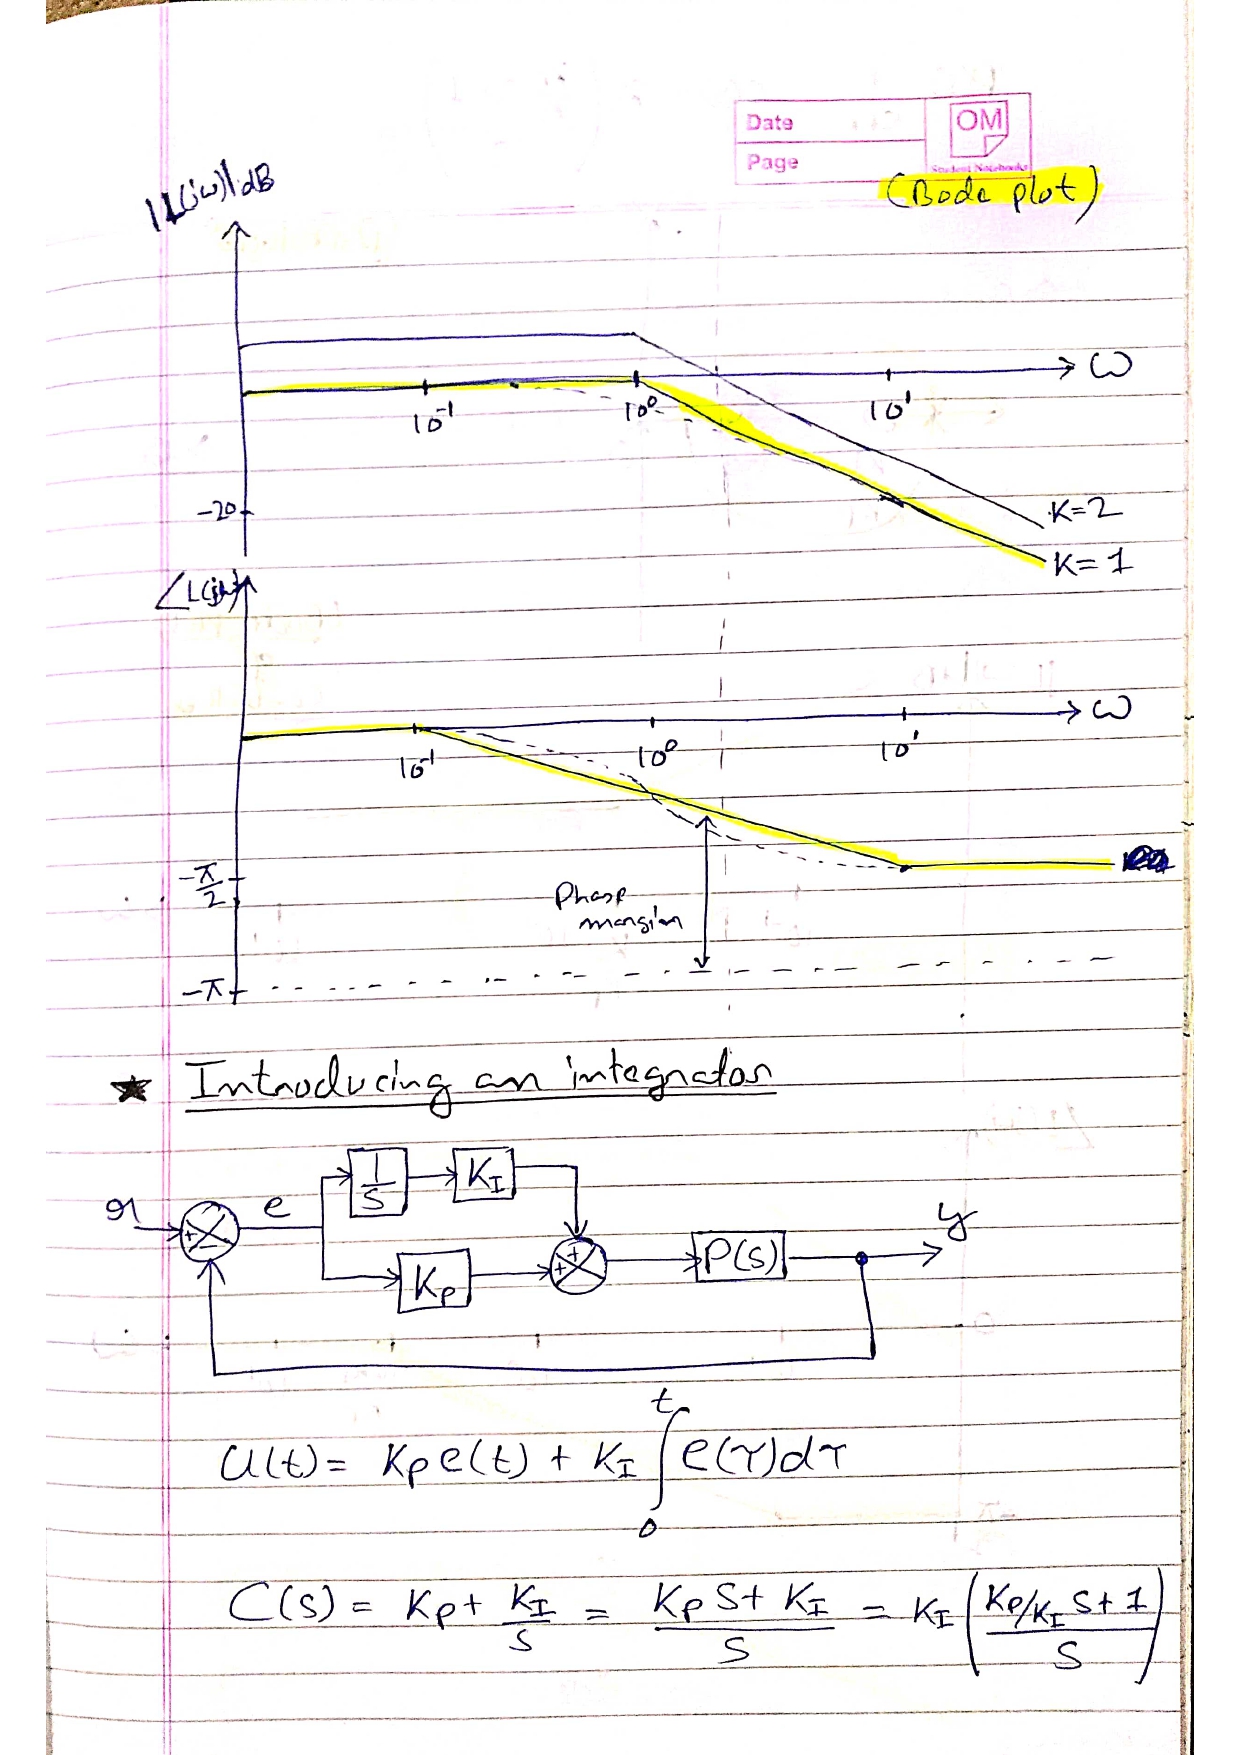 Date
OM
Page
Student Notebooks
(Bode plot)
|L(jω)| dB
ω
10⁻¹
10⁰
10¹
-20
K=2
K=1
∠L(jω)
ω
10⁻¹
10⁰
10¹
-π/2
Phase
margin
-π
★ Introducing an integrator
r
+
-
e
1/S
K_I
K_P
+
+
P(S)
y
U(t) = K_P e(t) + K_I ∫₀ᵗ e(τ)dτ
C(S) = K_P + K_I/S = (K_P S + K_I)/S = K_I ((K_P/K_I S + 1)/S)